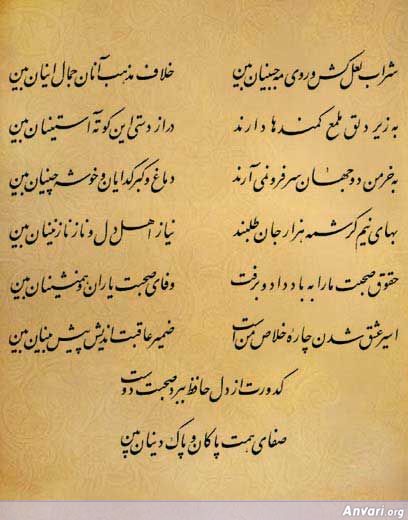 شراب لعل کش و روی مه جبینان بین خلاف مذهب آنان جمال اینان بین
به زیر دلق ملمع کمندها دارند دراز دستی این کوته آستینان بین
به خرمن دو جهان سر فرو نمی آرند دماغ و کبر گدایان و خوشه چینان بین
بهای نیم کرشمه هزار جان طلبند نیاز اهل دل و ناز نازنینان بین
حقوق صحبت ما را به باد داد و برفت وفای صحبت یاران و همنشینان بین
اسیر عشق شدن چارۀ خلاص من است ضمیر عاقبت اندیش پیش بینان بین
کدورت از دل حافظ ببرد صحبت دوست
صفای همت پاکان و پاک دینان بین
Anvari.org